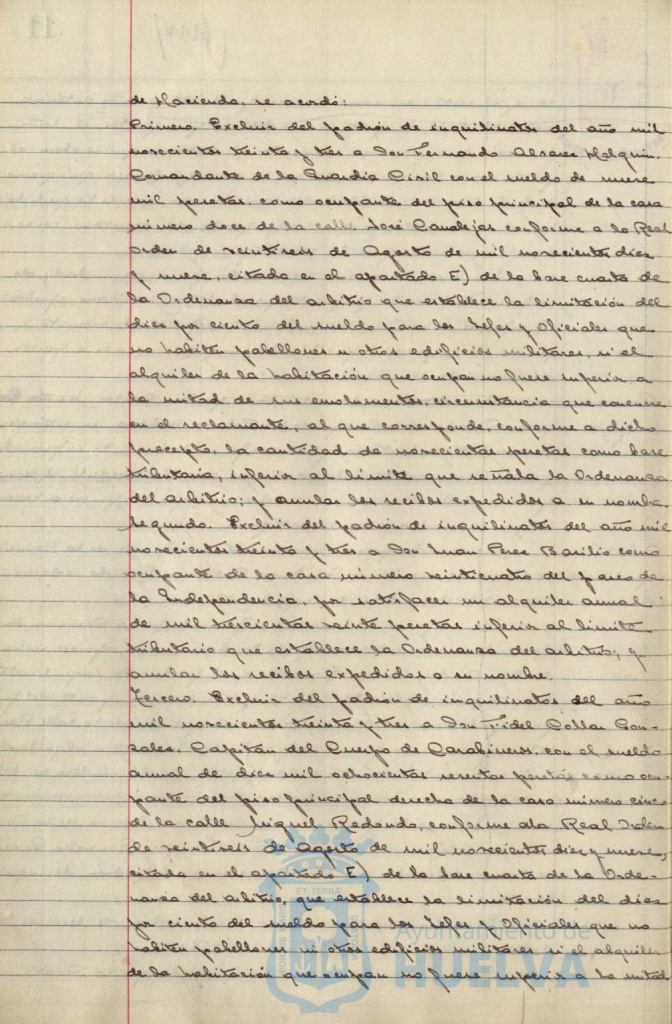 de Hacienda, se acordó:
Primero. Excluir del padrón de inquilinatos del año mil
novecientos treinta y tres a Don Fernando Alvarez Holguin.
Comandante de la Guardia Civil con el sueldo de nueve
mil pesetas, como ocupante del piso principal de la casa
número doce de la calle José Canalejas conforme a la Real
Orden de veintiseis de Agosto de mil novecientos diez
y nueve, citada en el apartado E) de la base cuarta de
la Ordenanza del arbitrio que establece la limitación del
diez por ciento del sueldo para los Jefes y Oficiales que
no habiten pabellones u otros edificios militares, si el
alquiler de la habitación que ocupan no fuere superior a
la mitad de sus emolumentos, circunstancia que concurre
en el reclamante, al que corresponde, conforme a dicho
precepto, la cantidad de novecientas pesetas como base
tributaria, inferior al límite que señala la Ordenanza
del arbitrio; y anular los recibos expedidos a su nombre.
Segundo. Excluir del padrón de inquilinatos del año mil
novecientos treinta y tres a Don Juan Perez Barilio como
ocupante de la casa número veinticuatro del paseo de
la Independencia, por satisfacer un alquiler anual
de mil trescientas veinte pesetas inferior al límite
tributario que establece la Ordenanza del arbitrio; y
anular los recibos expedidos a su nombre.
Tercero. Excluir del padrón de inquilinatos del año
mil novecientos treinta y tres a Don Fidel Collar Gon-
zales, Capitán del Cuerpo de Carabineros, con el sueldo
anual de diez mil ochocientas sesenta pesetas como ocu-
pante del piso principal derecho de la casa número cinco
de la calle Miguel Redondo, conforme a la Real Orden
de veintiseis de Agosto de mil novecientos diez y nueve,
citada en el apartado E) de la base cuarta de la Orde-
nanza del arbitrio, que establece la limitación del diez
por ciento del sueldo para los Jefes y Oficiales que no
habiten pabellones ni otros edificios militares si el alquiler
de la habitación que ocupan no fuere superior a la mitad
ET TERRÆ
Ayuntamiento de
HUELVA